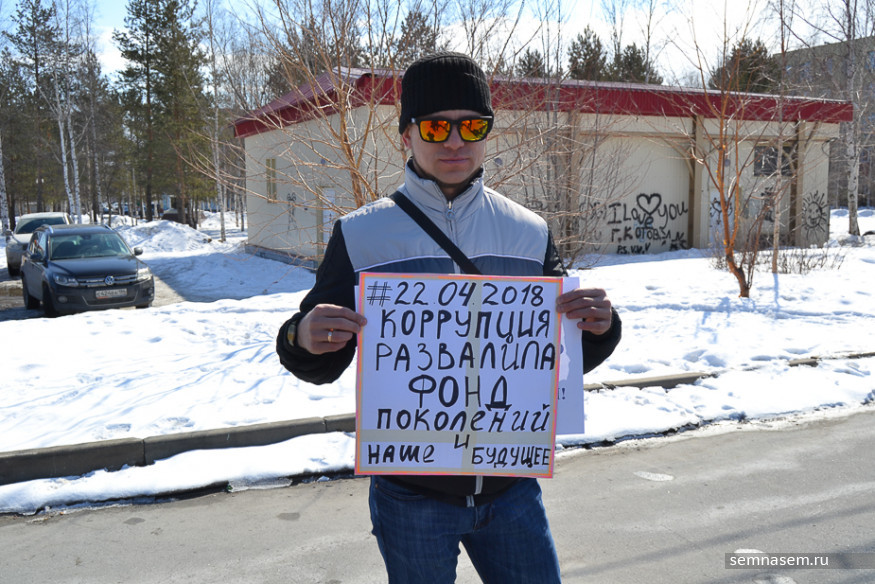 I Love you
Г. КОГОВ
#22.04.2018
КОРРУПЦИЯ
РАЗВАЛИЛА
ФОНД
ПОКОЛЕНИЙ
И
НАШЕ БУДУЩЕЕ
semnasem.ru